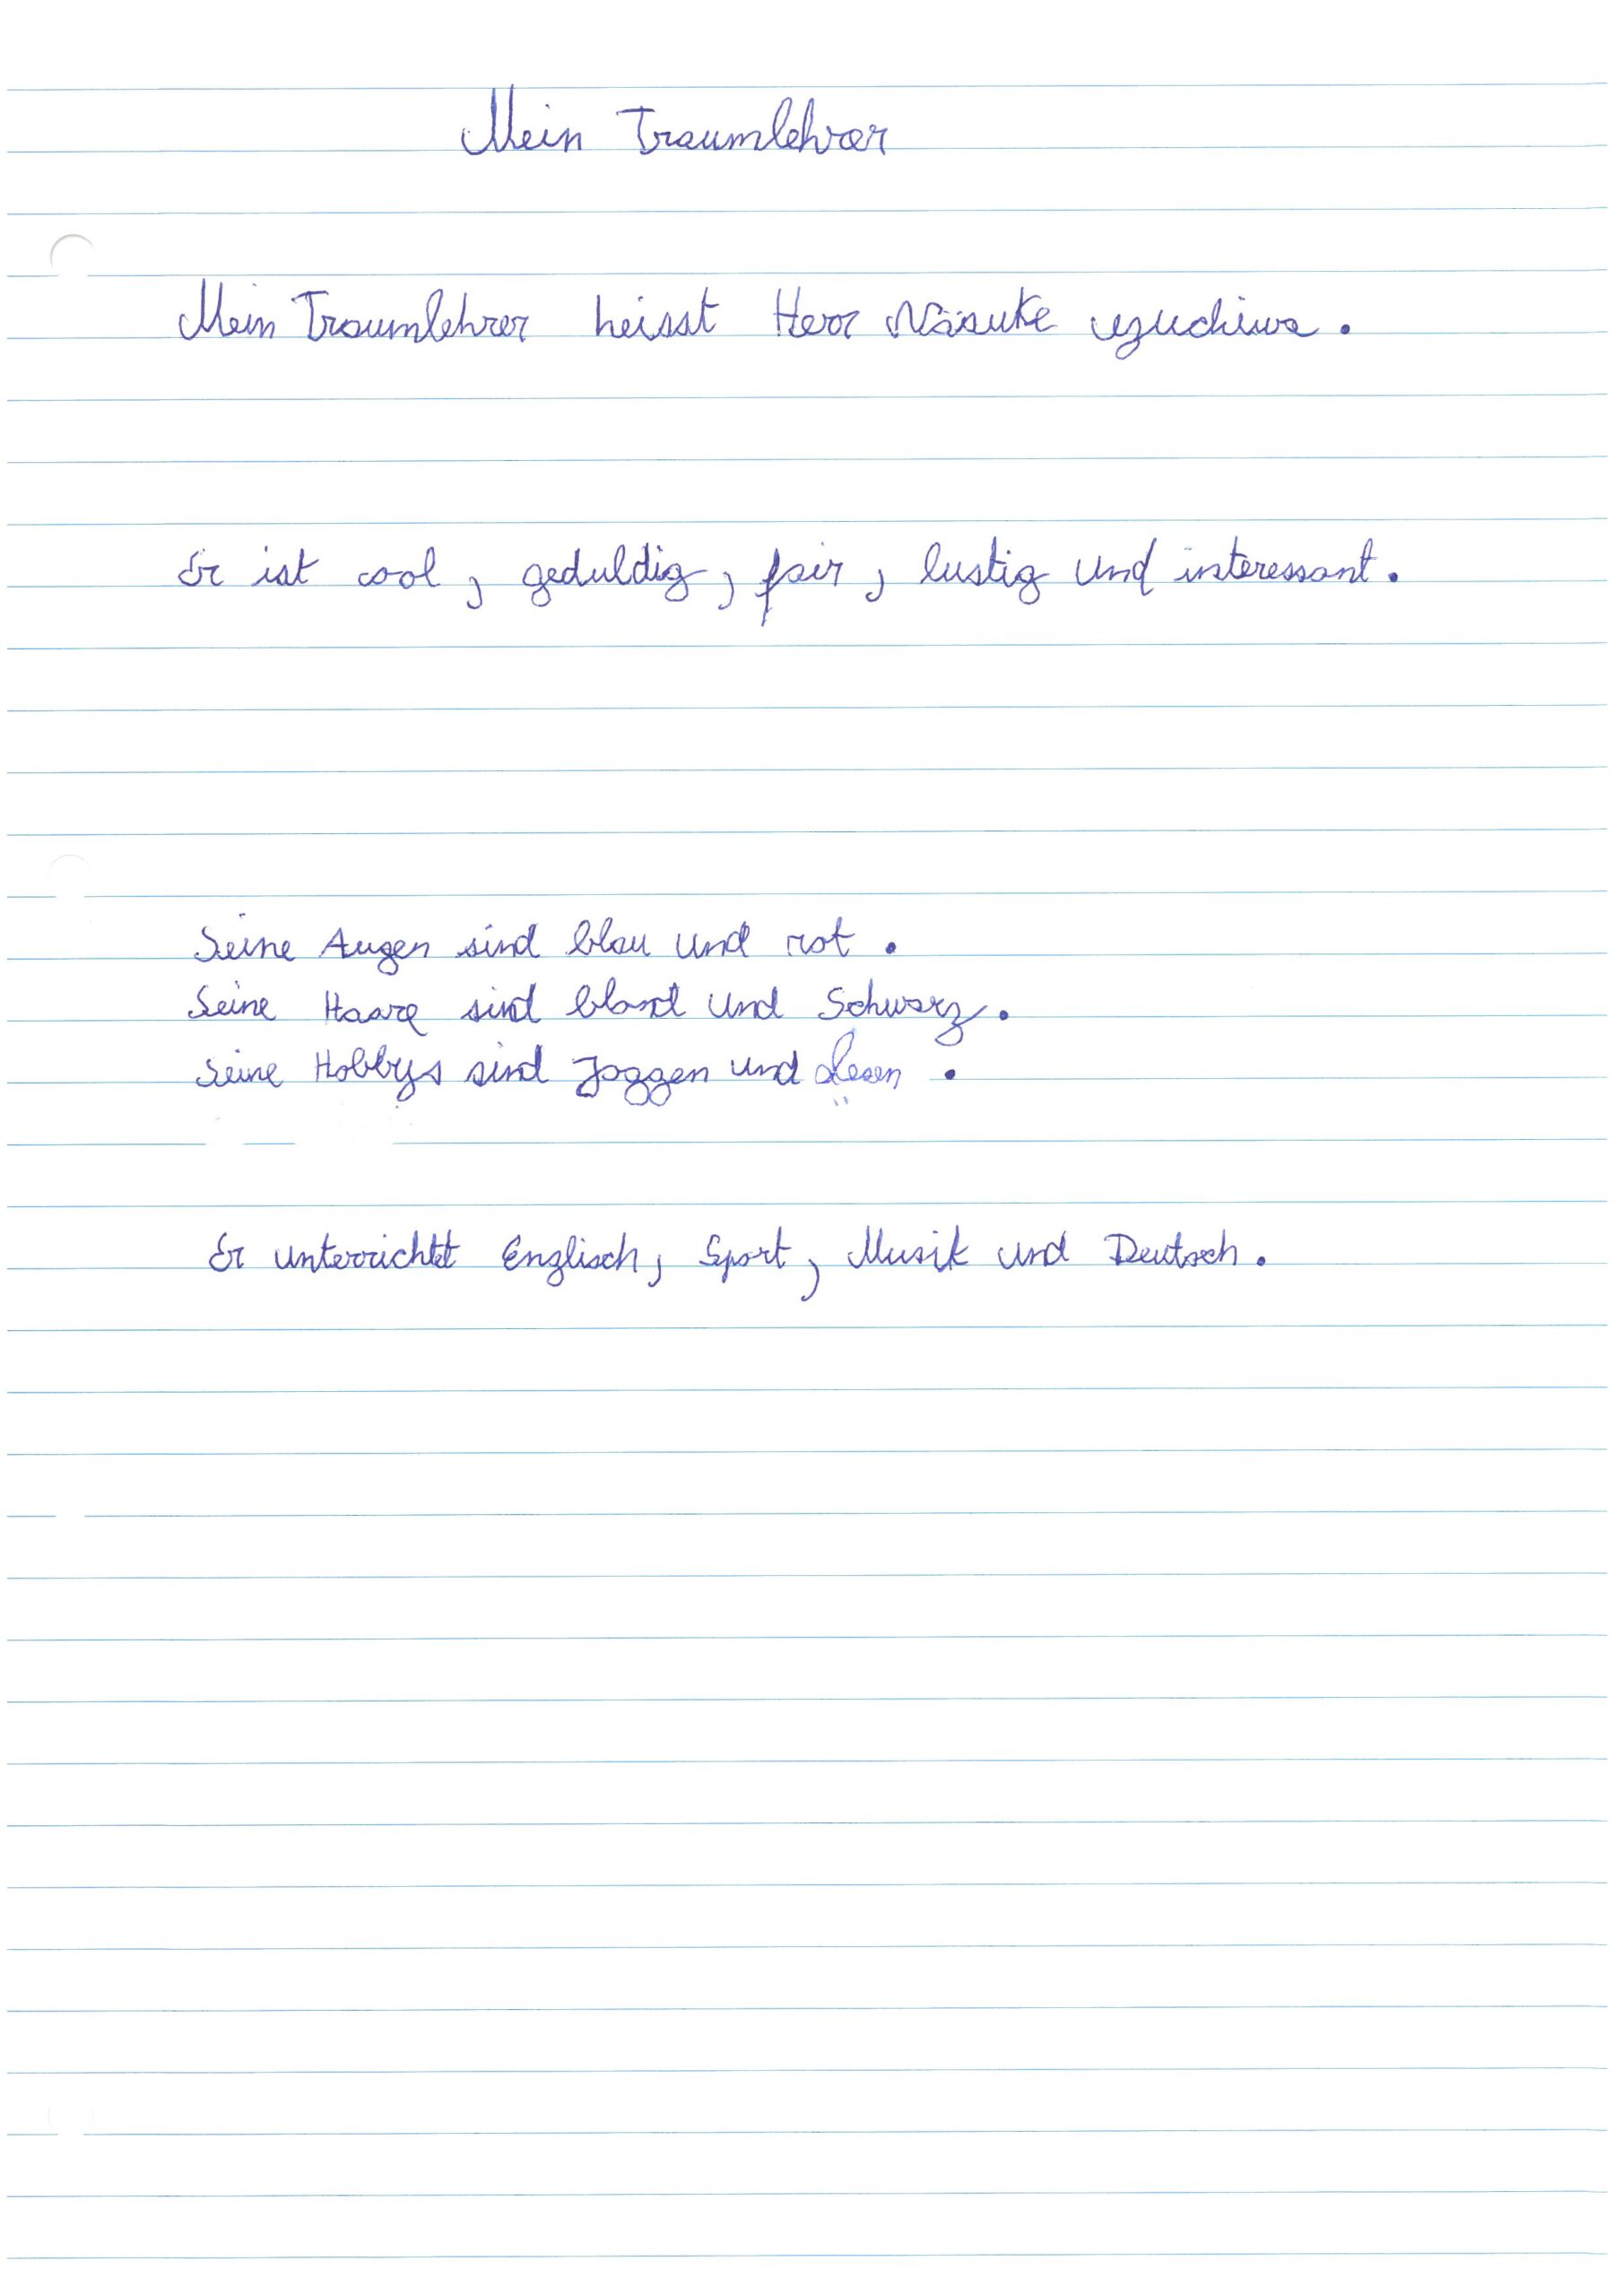 Mein Traumlehrer
Mein Traumlehrer heisst Herr Näsuke uzuchiwa.
Er ist cool, geduldig, fair, lustig und interessant.
Seine Augen sind blau und rot.
Seine Haare sind blond und Schwarz.
Seine Hobbys sind Joggen und Lesen.
Er unterrichtet Englisch, Sport, Musik und Deutsch.